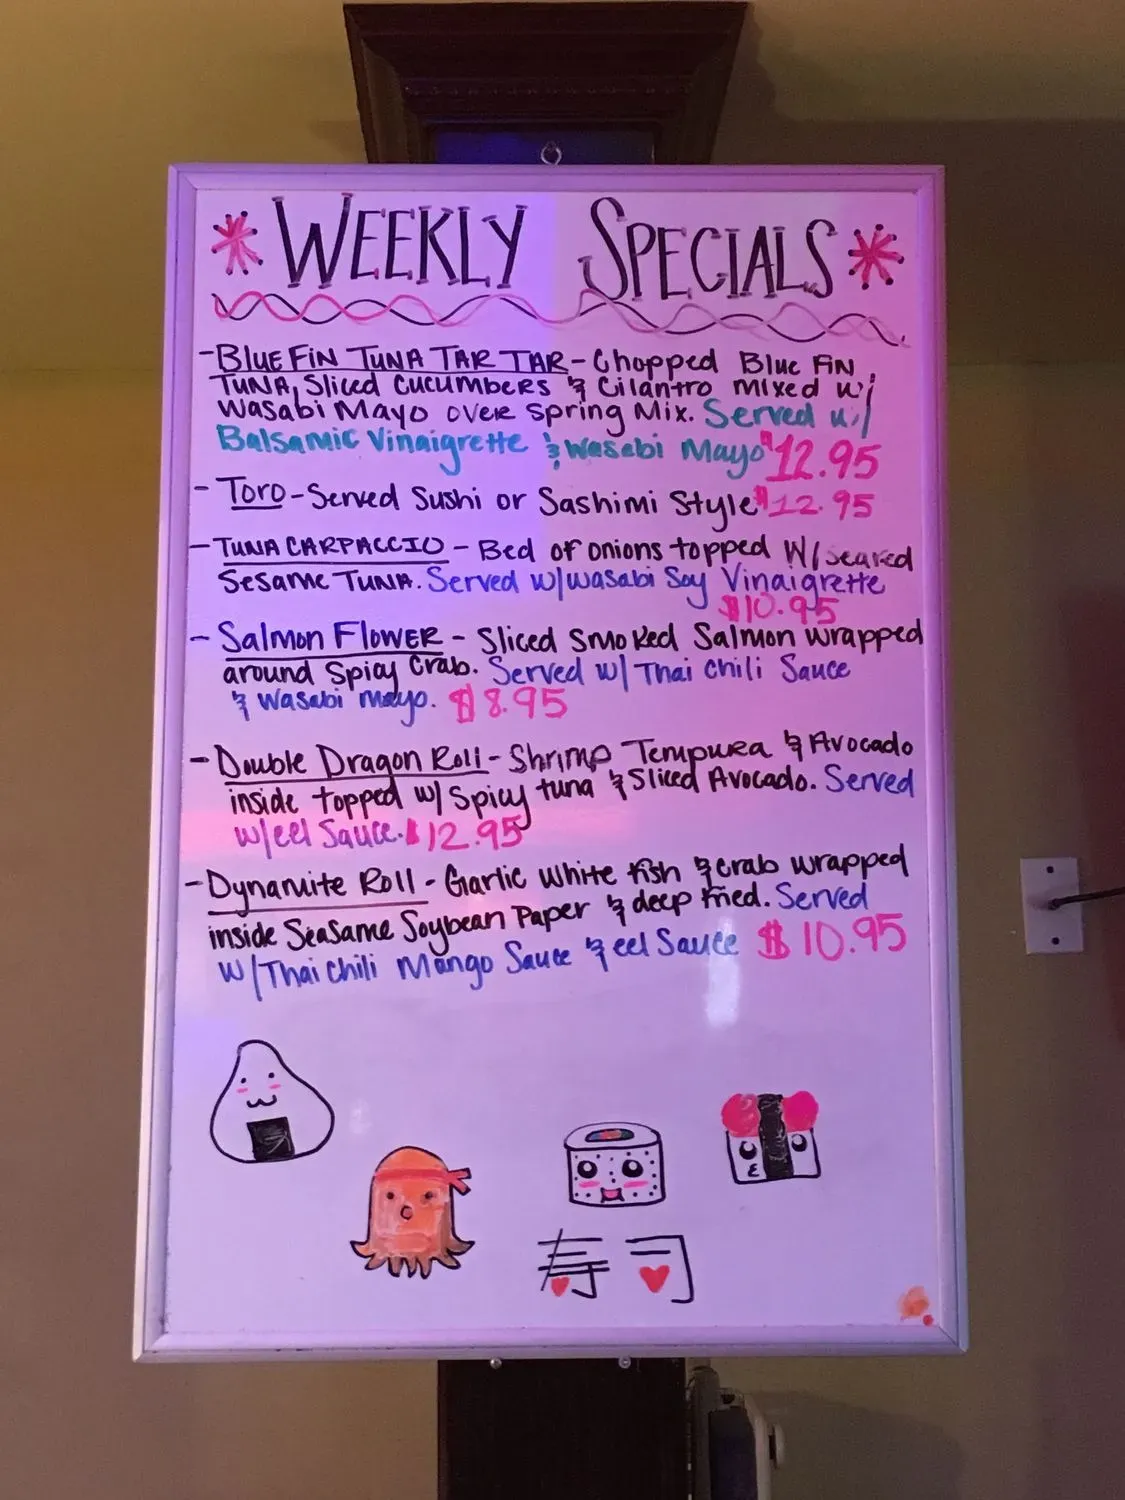 * WEEKLY SPECIALS *
- BLUE FIN TUNA TAR TAR - Chopped Blue Fin
TUNA, Sliced Cucumbers & Cilantro mixed w/
Wasabi Mayo over Spring Mix. Served w/
Balsamic Vinaigrette & Wasabi Mayo $12.95
- TORO - Served Sushi or Sashimi Style $12.95
- TUNA CARPACCIO - Bed of onions topped w/ seared
Sesame Tuna. Served w/ wasabi Soy Vinaigrette
$10.95
- Salmon Flower - Sliced Smoked Salmon wrapped
around Spicy Crab. Served w/ Thai Chili Sauce
& Wasabi mayo. $8.95
- Double Dragon Roll - Shrimp Tempura & Avocado
inside topped w/ Spicy tuna & Sliced Avocado. Served
w/ eel Sauce. $12.95
- Dynamite Roll - Garlic White fish & crab wrapped
inside Seasame Soybean Paper & deep fried. Served
w/ Thai Chili Mango Sauce & eel Sauce $10.95
寿司